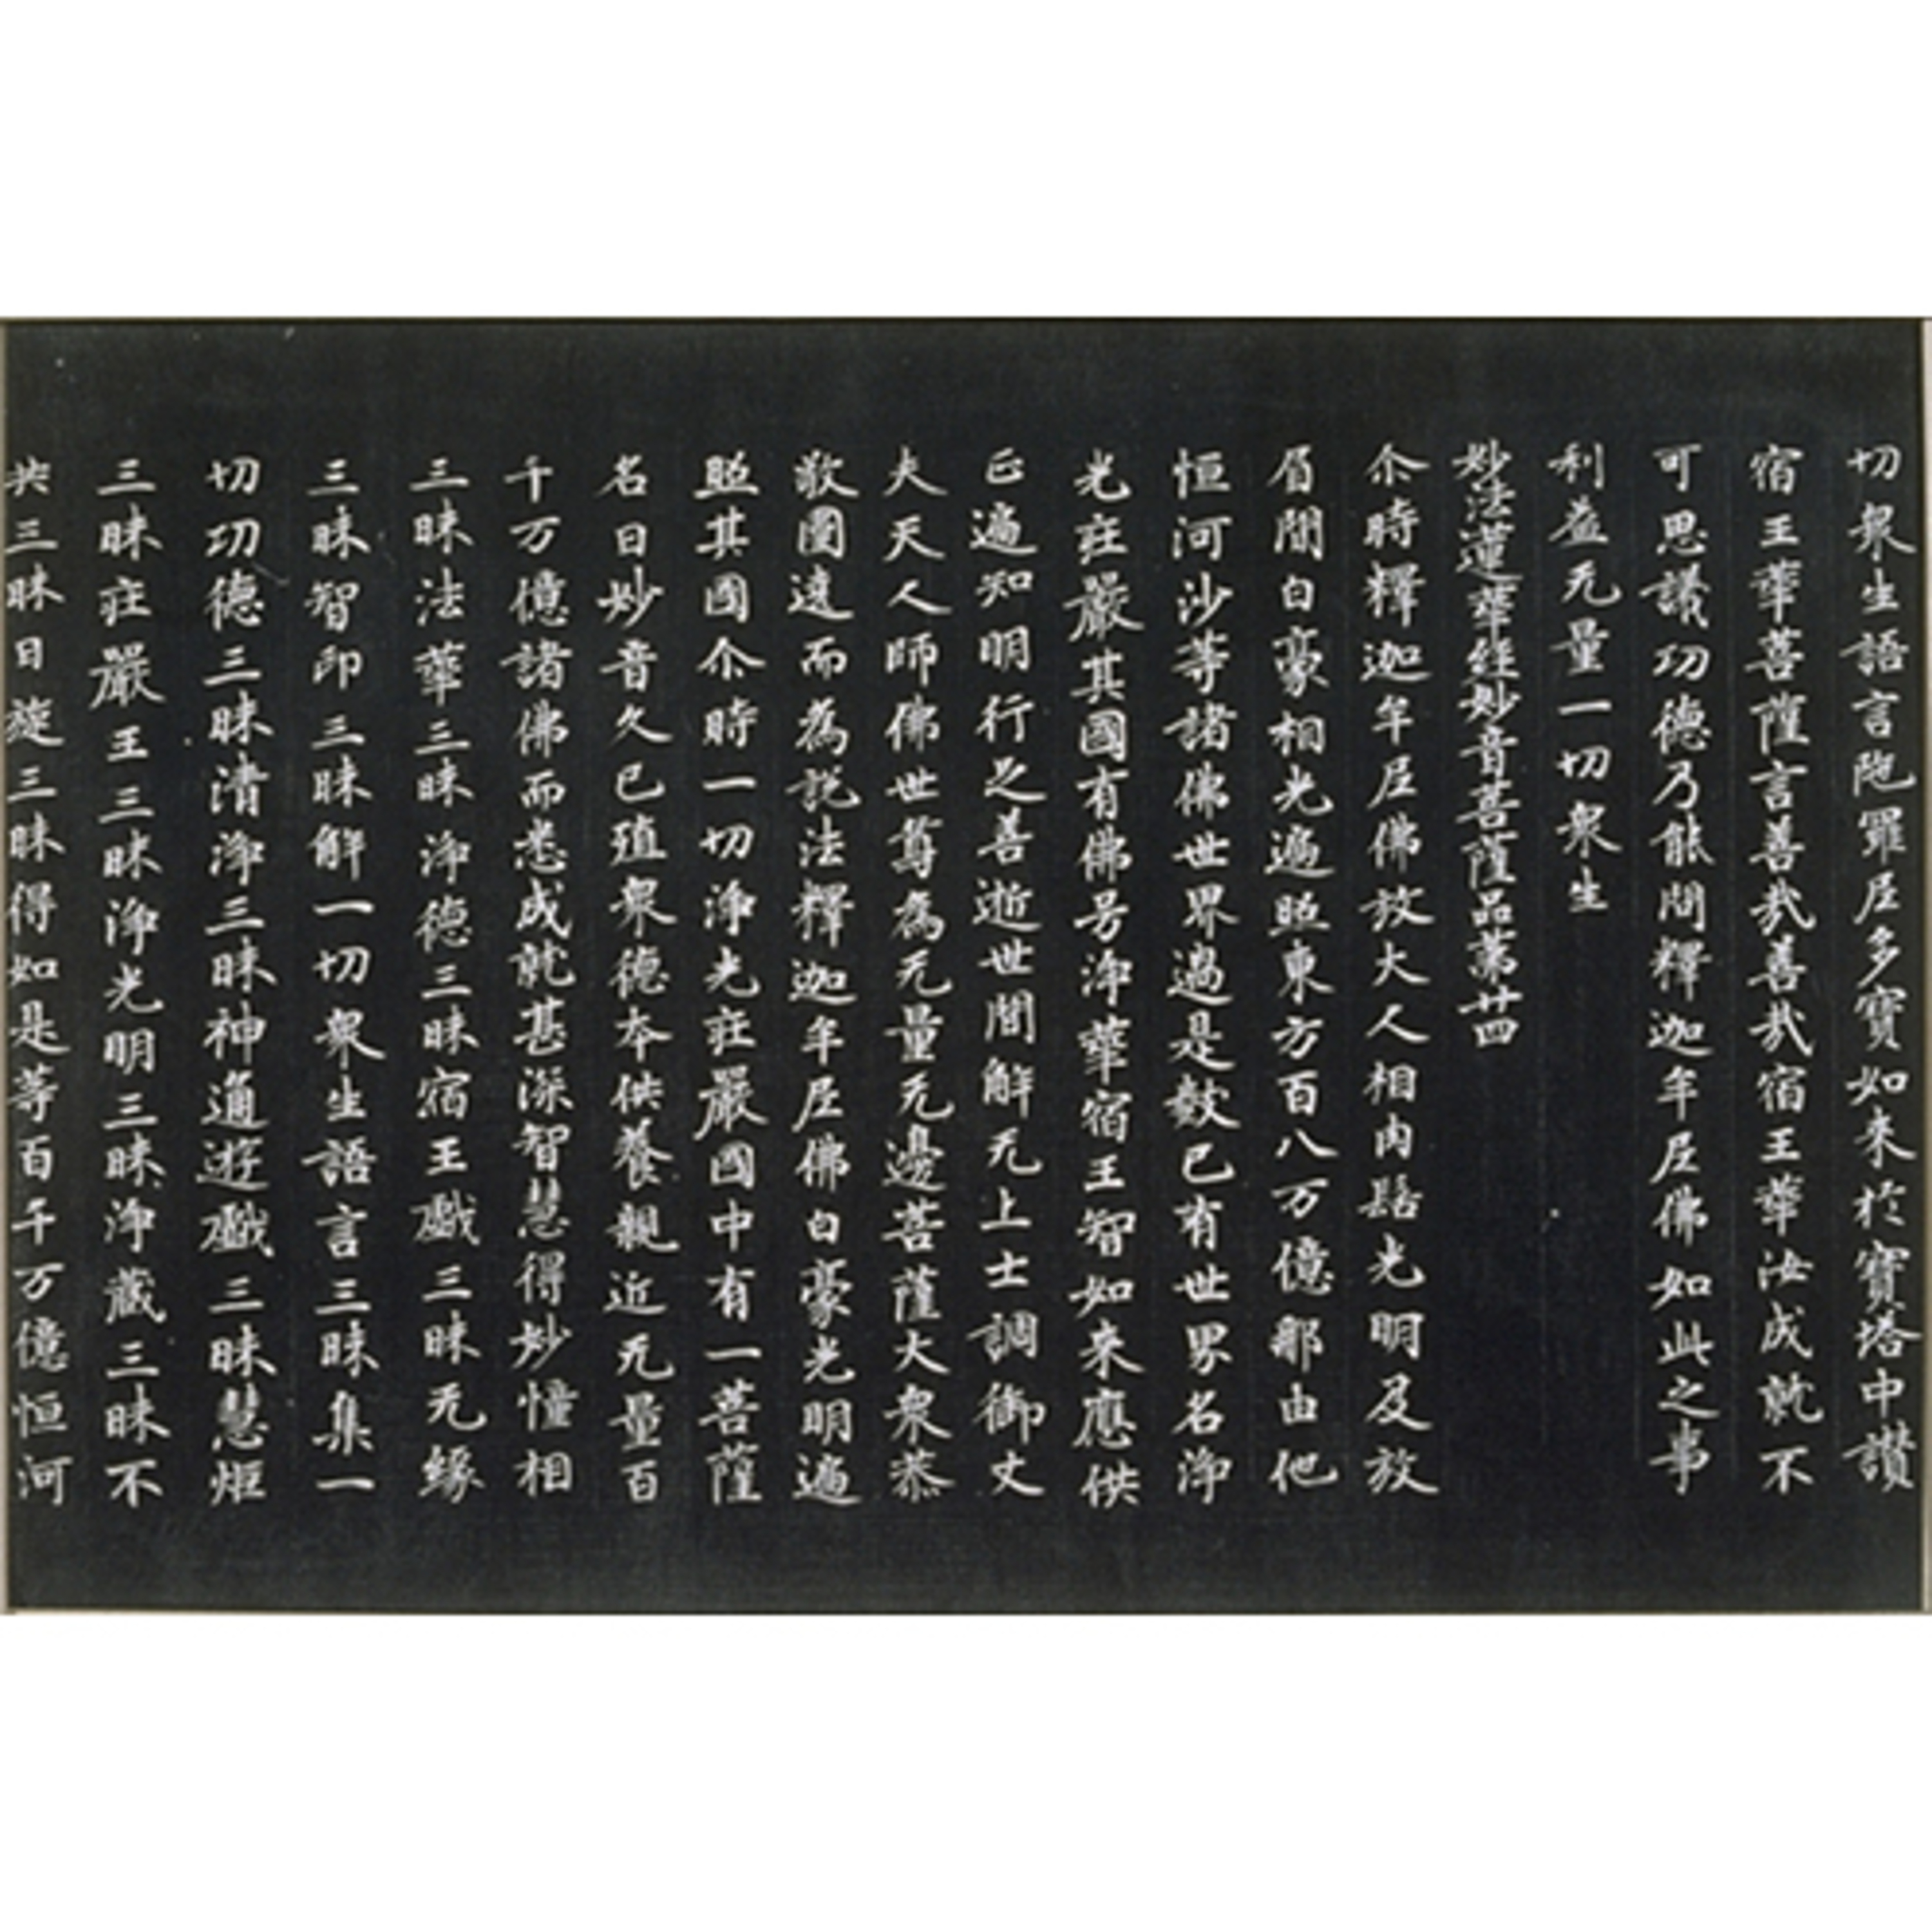 切衆生語言陁羅尼多寶如来於寶塔中讃
宿王華菩薩言善哉善哉宿王華汝成就不
可思議功德乃能問釋迦牟尼佛如此之事
利益无量一切衆生
妙法蓮華經妙音菩薩品第廿四
尒時釋迦牟尼佛放大人相肉髻光明及放
眉間白豪相光遍照東方百八万億那由他
恒河沙等諸佛世界過是數已有世界名淨
光莊嚴其國有佛号淨華宿王智如来應供
正遍知明行足善逝世間解无上士調御丈
夫天人師佛世尊為无量无邊菩薩大衆恭
敬圍遶而為說法釋迦牟尼佛白豪光明遍
照其國尒時一切淨光莊嚴國中有一菩薩
名曰妙音久已殖衆德本供養親近无量百
千万億諸佛而悉成就甚深智慧得妙憧相
三昧法華三昧淨德三昧宿王戲三昧无緣
三昧智印三昧解一切衆生語言三昧集一
切功德三昧清淨三昧神通遊戲三昧慧炬
三昧莊嚴王三昧淨光明三昧淨蔵三昧不
共三昧日旋三昧得如是等百千万億恒河